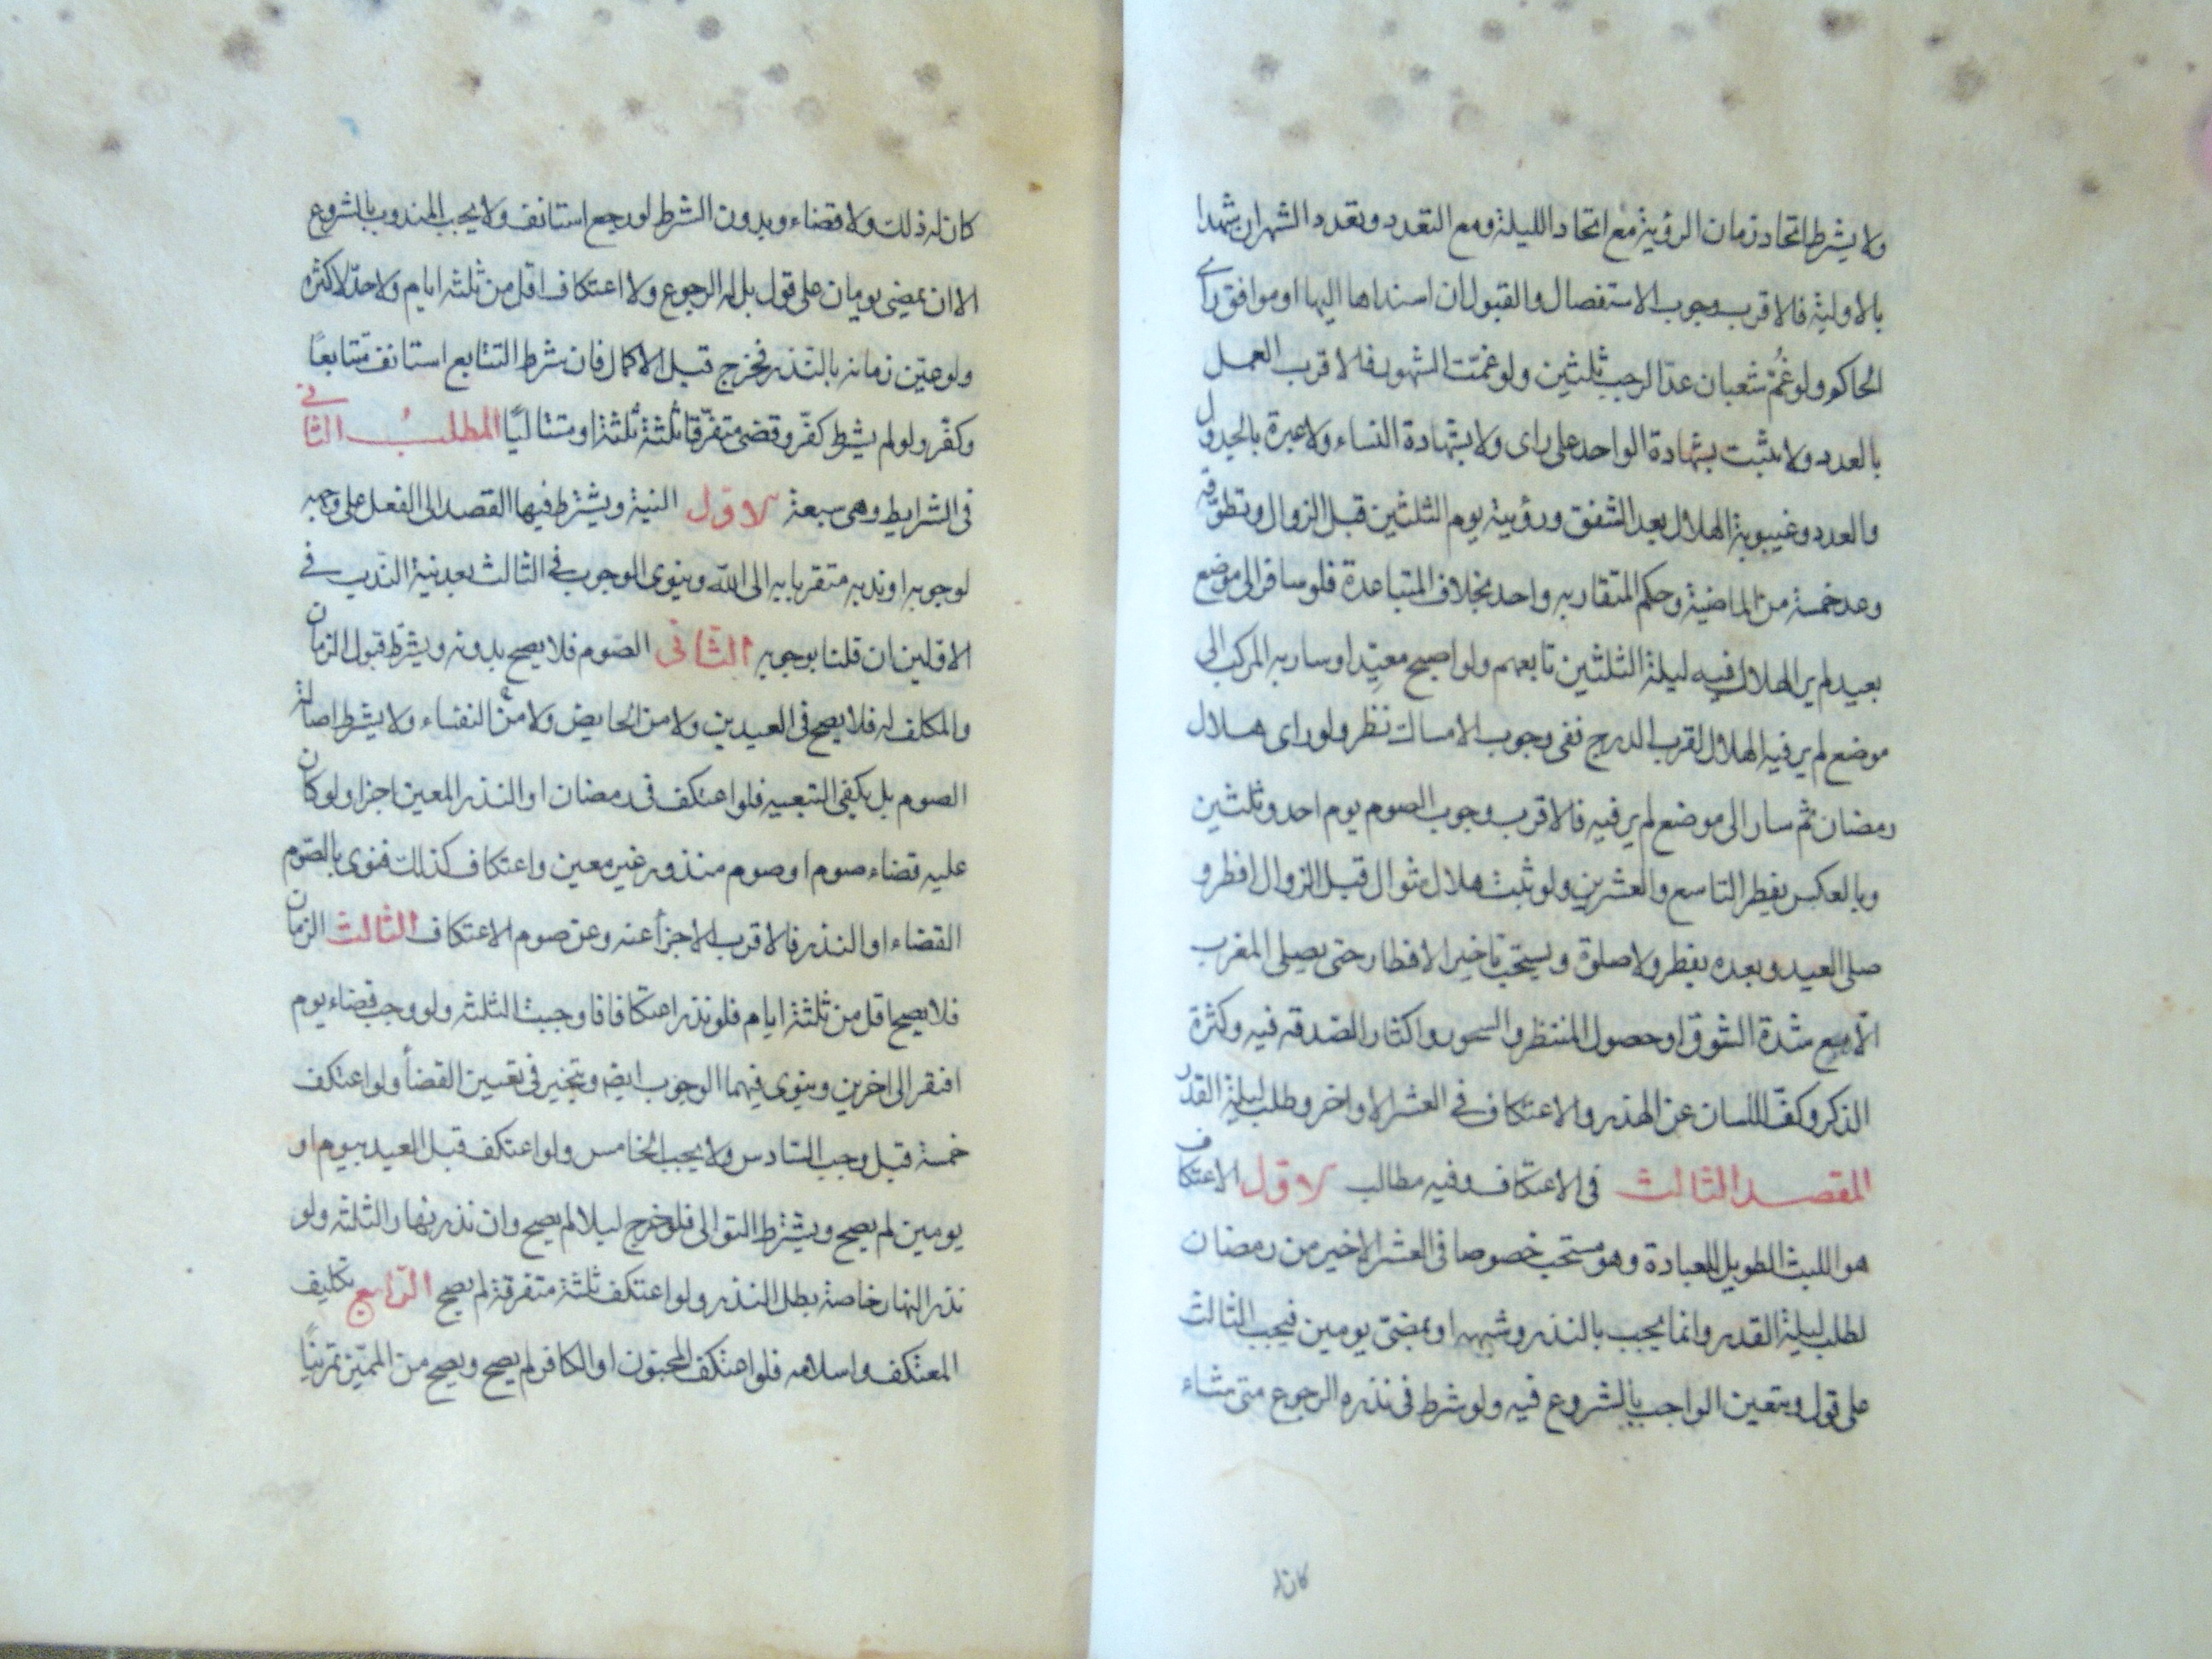 ولا يشترط اتحاد زمان الرؤية مع اتحاد الليلة ومع التعدد وتعدد الشهر ان شهدا
بالاولية فالاقرب وجوب الاستفصال والقبول ان اسنداها اليها او موافق راى
الحاكم ولو غُمّ شعبان عدّ الرجب ثلثين ولو غمّت الشهور فالاقرب العمل
بالعدد ولا يثبت بشهادة الواحد على راى ولا بشهادة النساء ولا عبرة بالجدول
والعدد وغيبوبة الهلال بعد الشفق ورؤيته يوم الثلثين قبل الزوال وتطوّقه
وعد خمسة من الماضية وحكم المتقاربه واحد بخلاف المتباعدة فلو سافر الى موضع
بعيد لم ير الهلال فيه ليلة الثلثين تابعهم ولو اصبح معيّدا وسار به المركب الى
موضع لم ير فيه الهلال لقرب الدرج ففى وجوب الامساك نظر ولو راى هلال
رمضان ثم سار الى موضع لم ير فيه فالاقرب وجوب الصوم يوم احد وثلثين
وبالعكس يفطر التاسع والعشرين ولو ثبت هلال شوال قبل الزوال افطر و
صلى العيد وبعده يفطر ولا صلوة ويستحب تاخير الافطار حتى يصلى المغرب
الّا مع شدة الشوق او حصول المنتظر والسحور واكثار الصدقه فيه وكثرة
الذكر وكفّ اللسان عن الهذر والاعتكاف في العشر الاواخر وطلب ليلة القدر
المقصد الثالث فى الاعتكاف وفيه مطالب الاول الاعتكاف
هو اللبث الطويل للعبادة وهو مستحب خصوصا فى العشر الاخير من رمضان
لطلب ليلة القدر وانما يجب بالنذر وشبهه او بمضىّ يومين فيجب الثالث
على قول ويتعين الواجب بالشروع فيه ولو شرط فى نذره الرجوع متى شاء
كان له
كان له ذلك ولا قضاء وبدون الشرط لو رجع استانف ولا يجب المندوب بالشروع
الا ان يمضى يومان على قول بل له الرجوع ولا اعتكاف اقل من ثلثه ايام ولا حدّ لاكثره
ولو عيّن زمانه بالنّذر فخرج قبل الاكمال فان شرط التتابع استانف متتابعًا
وكفّر ولو لم يشرط كفّر وقضى متفرّقا ثلثة ثلثة او متتاليًا المطلب الثانى
فى الشرايط وهى سبعة الاول النية ويشترط فيها القصد الى الفعل على وجهه
لوجوبه او ندبه متقربا به الى الله وينوى الوجوب فى الثالث بعد نية الندب فى
الاوّلين ان قلنا بوجوبه الثانى الصّوم فلا يصح بدونه ويشترط قبول الزمان
والمكلف له فلا يصح فى العيدين ولا من الحايض ولا من النفساء ولا يشترط اصالة
الصوم بل يكفى التبعيه فلو اعتكف فى رمضان او النذر المعين اجزا ولو كان
عليه قضاء صوم او صوم منذور غير معين واعتكاف كذلك فنوى بالصّوم
القضاء او النذر فالاقرب الاجزأ عنه وعن صوم الاعتكاف الثالث الزمان
فلا يصح اقل من ثلثة ايام فلو نذر اعتكافا فاوجبت الثلثه ولو وجب قضاء يوم
افتقر الى اخرين وينوى فيهما الوجوب ايضا ويتخير فى تعيين القضأ ولو اعتكف
خمسة قيل وجب السّادس ولا يجب الخامس ولو اعتكف قبل العيد بيوم او
يومين لم يصح ويشترط التوالى فلو خرج ليلا لم يصح وان نذر نهار الثلثه ولو
نذر النهار خاصة بطل النذر ولو اعتكف ثلثة متفرقة لم يصح الرّابع تكليف
المعتكف واسلامه فلو اعتكف المجنون او الكافر لم يصح ويصح من المميّز تمرينًا